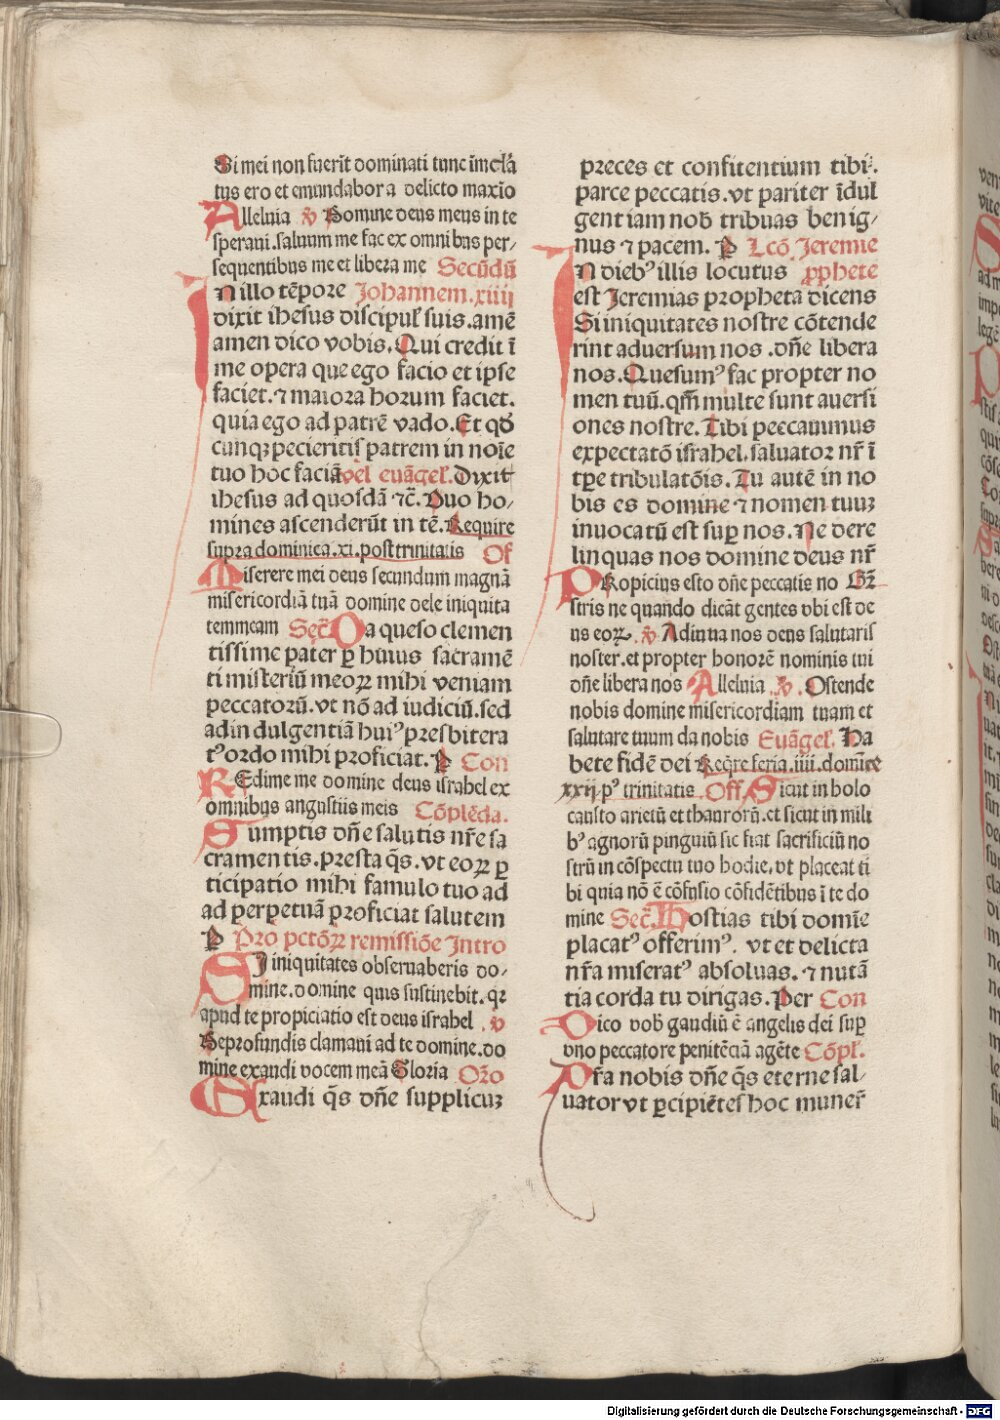 Si mei non fuerĩt dominati tunc ĩmcl̃a
tus ero et emundabor a delicto maxĩo
Alleluia ℣ Domine deus meus in te
speraui .saluum me fac ex omnibus per/
sequentibus me et libera me Secũdũ
In illo tẽpore Johannem.xiiij
dixit ihesus discipul' suis.amẽ
amen dico vobis. Qui credit ĩ
me opera que ego facio et ipse
faciet.⁊ maiora horum faciet.
quia ego ad patrẽ vado. Et qď
cunqꝫ pecieritis patrem in noĩe
tuo hoc faciã vel euãgel'. Dixit
ihesus ad quosdã ⁊c̃. Duo ho/
mines ascenderũt in tẽ. Require
supra dominica.xi.post trinitatis Of
Miserere mei deus secundum magnã
misericordiã tuã domine dele iniquita
temmeam Sec̃. Da queso clemen
tissime pater ꝑ huius sacramẽ
ti misteriũ meoꝝ mihi veniam
peccatorũ.vt nõ ad iudiciũ.sed
ad indulgentiã huiꝰ presbitera
tꝰ ordo mihi proficiat. P Con
REdime me domine deus israhel ex
omnibus angustiis meis Cõplẽda.
Sumptis dñe salutis nr̃e sa
cramentis.presta q̃s.vt eoꝝ ꝑ
ticipatio mihi famulo tuo ad
ad perpetuã proficiat salutem
P Pro pctõꝝ remissiõe Intro
SI iniquitates obseruaberis do/
mine.domine quis sustinebit.qꝛ
apud te propiciatio est deus israhel .v
Deprofundis clamaui ad te domine.do
mine exaudi vocem meã Gloria Orõ
Exaudi q̃s dñe supplicuꝫ
preces et confitentium tibi.
parce peccatis.vt pariter ĩdul
gentiam nob̃ tribuas benig/
nus ⁊ pacem. P Lcõ. Jeremie
In diebꝰ illis locutus ꝓphete
est Jeremias propheta dicens
Si iniquitates nostre cõtende
rint aduersum nos .dñe libera
nos. Quesumꝰ fac propter no
men tuũ.qm̃ multe sunt auersi
ones nostre. Tibi peccauimus
expectatõ israhel.saluator nr̃ ĩ
tp̃e tribulatõis. Tu autẽ in no
bis es domine ⁊ nomen tuuꝫ
inuocatũ est suꝑ nos. Ne dere
linquas nos domine deus nr̃
PRopicius esto dñe peccatis no Gr̃
stris ne quando dicãt gentes vbi est de
us eoꝝ. ℣ Adiuua nos deus salutaris
noster.et propter honorẽ nominis tui
dñe libera nos Alleluia .℣. Ostende
nobis domine misericordiam tuam et
salutare tuum da nobis Euãgel'. Ha
bete fidẽ dei Reqr̃e feria.iiii.domĩce
xxij.pꝰ trinitatis Off. Sicut in holo
causto arietũ et thaurorũ.et sicut in mili
bꝰ agnorũ pinguiũ sic fiat sacrificiũ no
strũ in cõspectu tuo hodie.vt placeat ti
bi quia nõ ẽ cõfusio cõfidẽtibus ĩ te do
mine Sec̃. Hostias tibi domĩe
placatꝰ offerimꝰ. vt et delicta
nr̃a miseratꝰ absoluas.⁊ nutã
tia corda tu dirigas. Per Con
Dico vob̃ gaudiũ ẽ angelis dei suꝑ
vno peccatore penitẽciã agẽte Cõpl'.
Pr̃a nobis dñe q̃s eterne sal/
uator vt ꝑcipiẽtes hoc muner̃
Digitalisierung gefördert durch die Deutsche Forschungsgemeinschaft - DFG